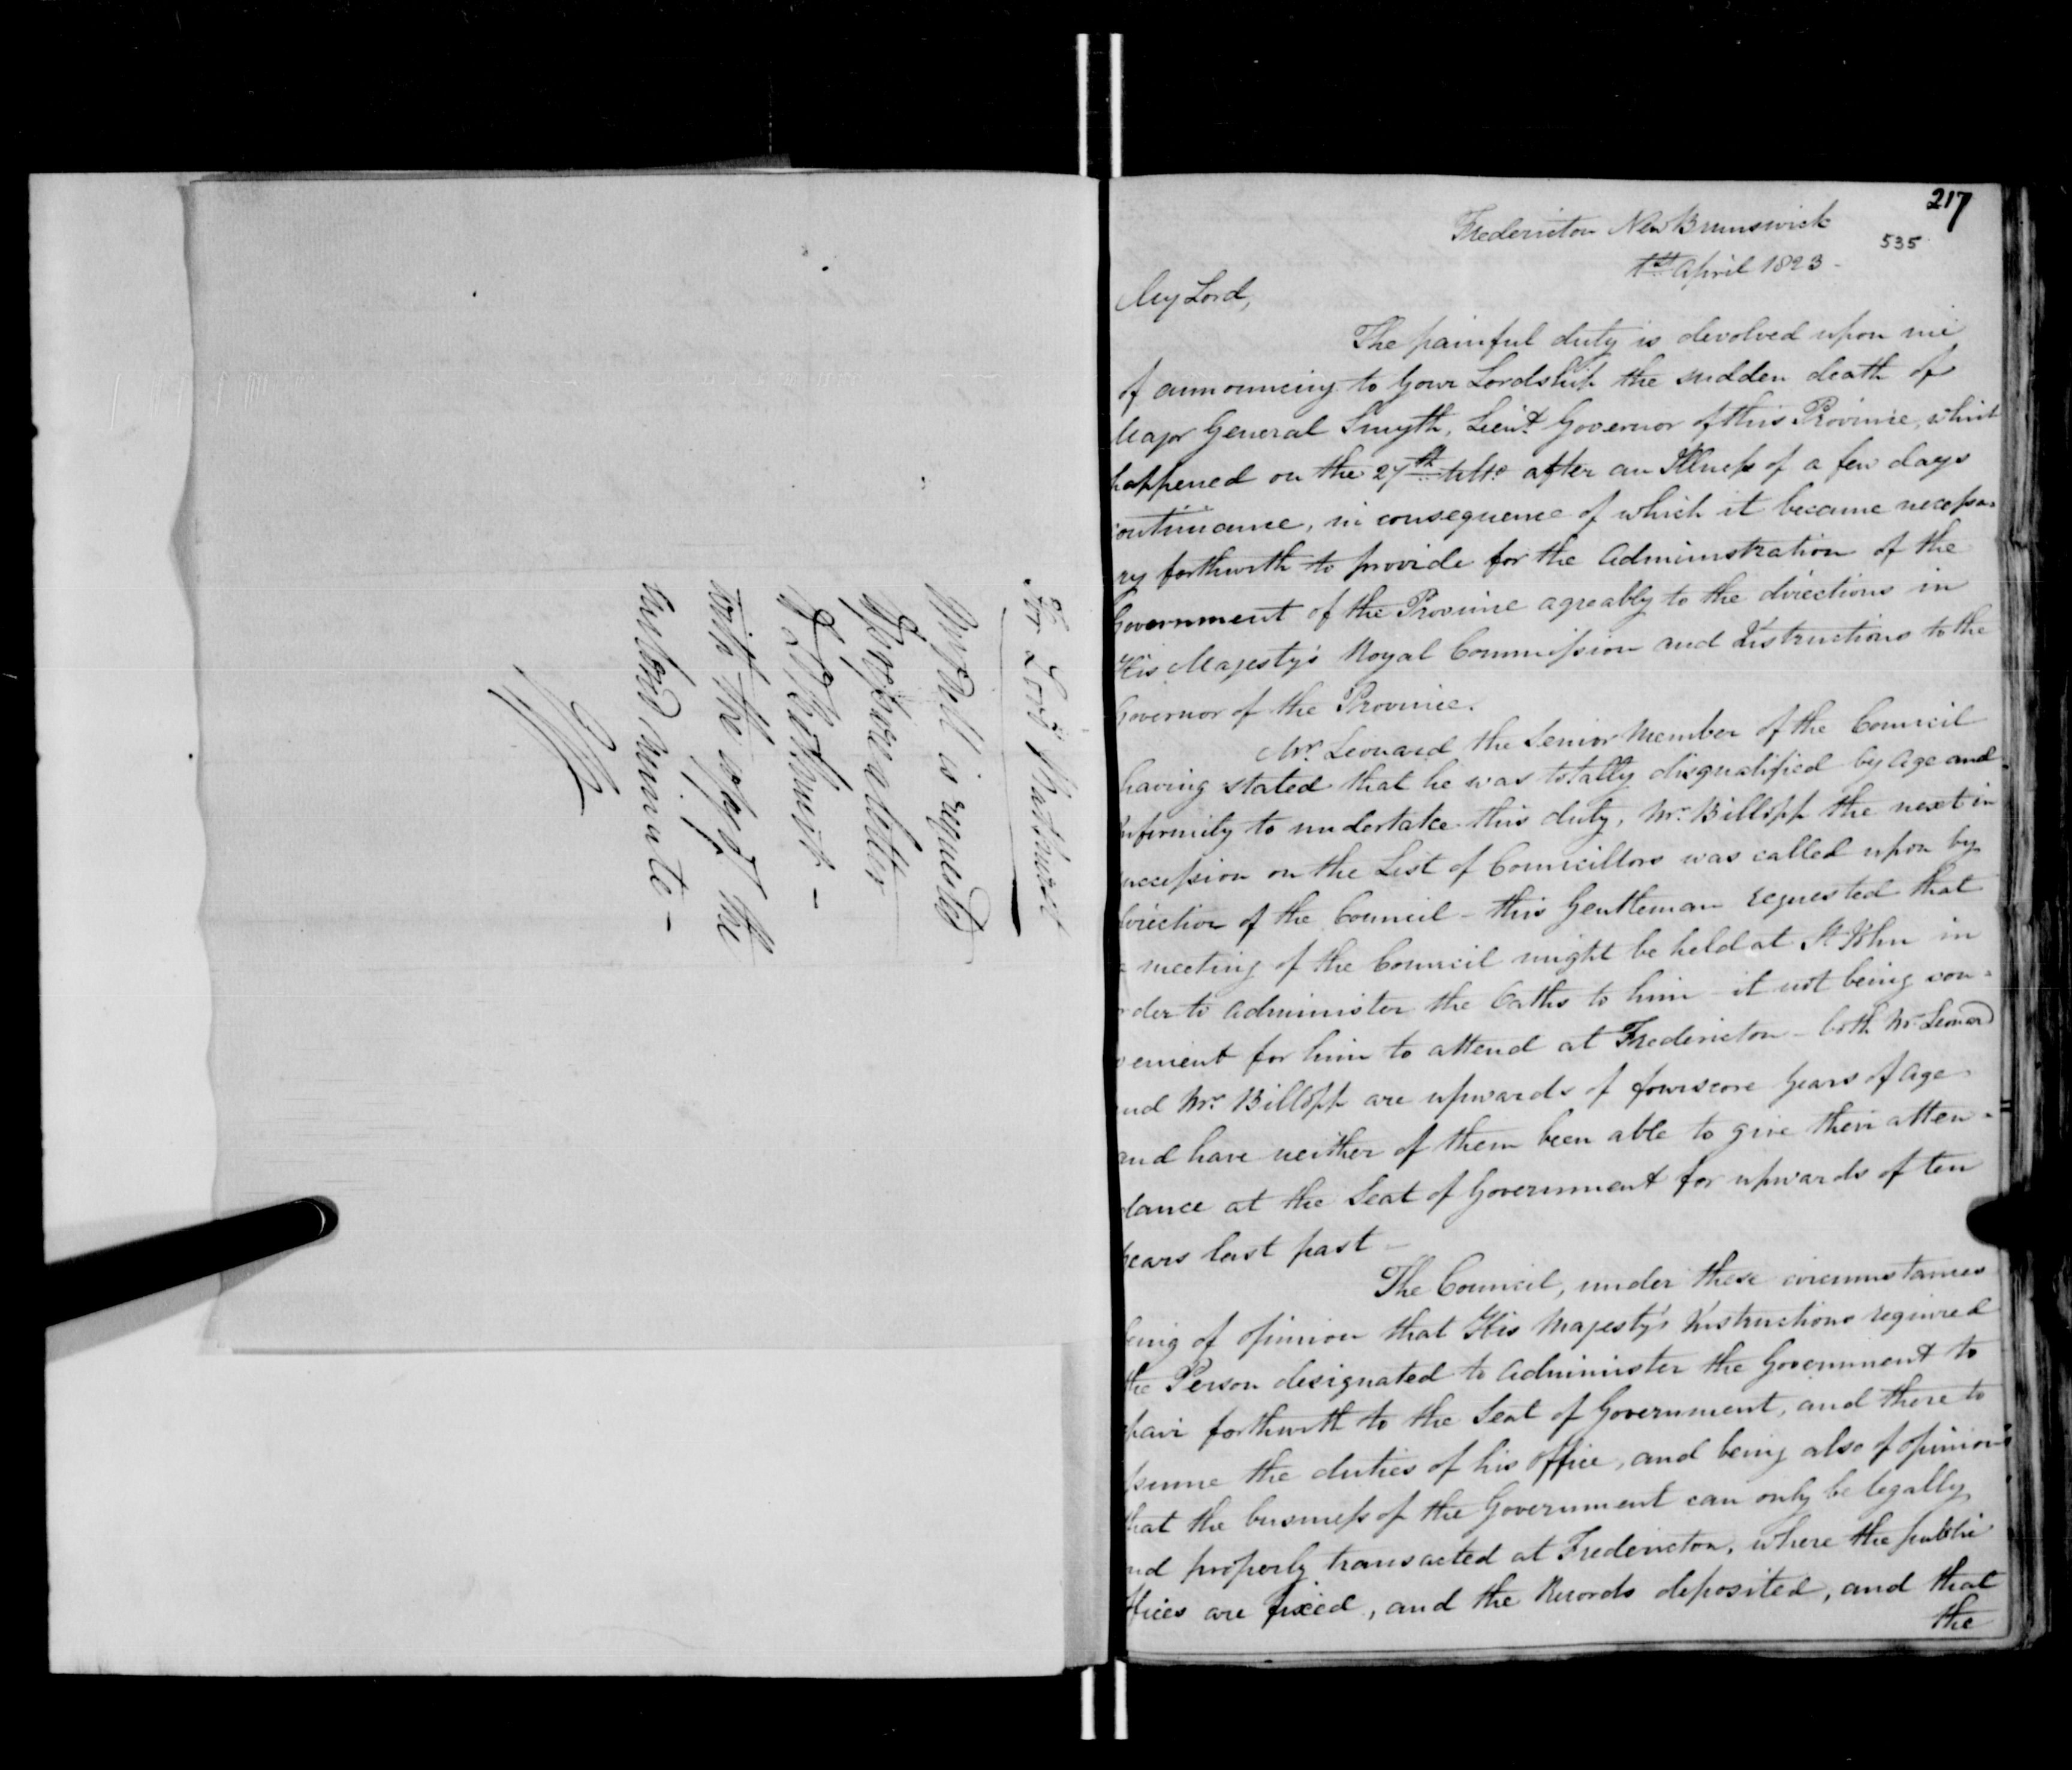 For Lord Bathurst
Mr Dill is requested
to prepare a letter
to Ld Bathurst -
with the copy of the
minute -
217
535
Fredericton New Brunswick
1st April 1823 -
My Lord,
The painful duty is devolved upon me
of announcing to Your Lordship the sudden death of
Major General Smyth, Lieut Governor of this Province, which
happened on the 27th ulto after an Illness of a few days
continuance, in consequence of which it became necessa-
ry forthwith to provide for the Administration of the
Government of the Province agreably to the directions in
His Majesty's Royal Commission and Instructions to the
Governor of the Province.
Mr. Leonard the Senior Member of the Council
having stated that he was totally disqualified by Age and
Infirmity to undertake this duty, Mr. Billopp the next in
uccession on the List of Councillors was called upon by
direction of the Council - this Gentleman requested that
a meeting of the Council might be held at St John in
rder to administer the Oaths to him - it not being con-
venient for him to attend at Fredericton - both Mr Leonard
and Mr. Billopp are upwards of fourscore Years of Age
and have neither of them been able to give their atten-
dance at the Seat of Government for upwards of ten
years last past -
The Council, under these circumstances
being of opinion that His Majesty's Instructions required
the Person designated to administer the Government to
pair forthwith to the Seat of Government, and there to
ssume the duties of his Office, and being also of opinion
that the business of the Government can only be legally
nd properly transacted at Fredericton, where the public
ffices are fixed, and the Records deposited, and that
the